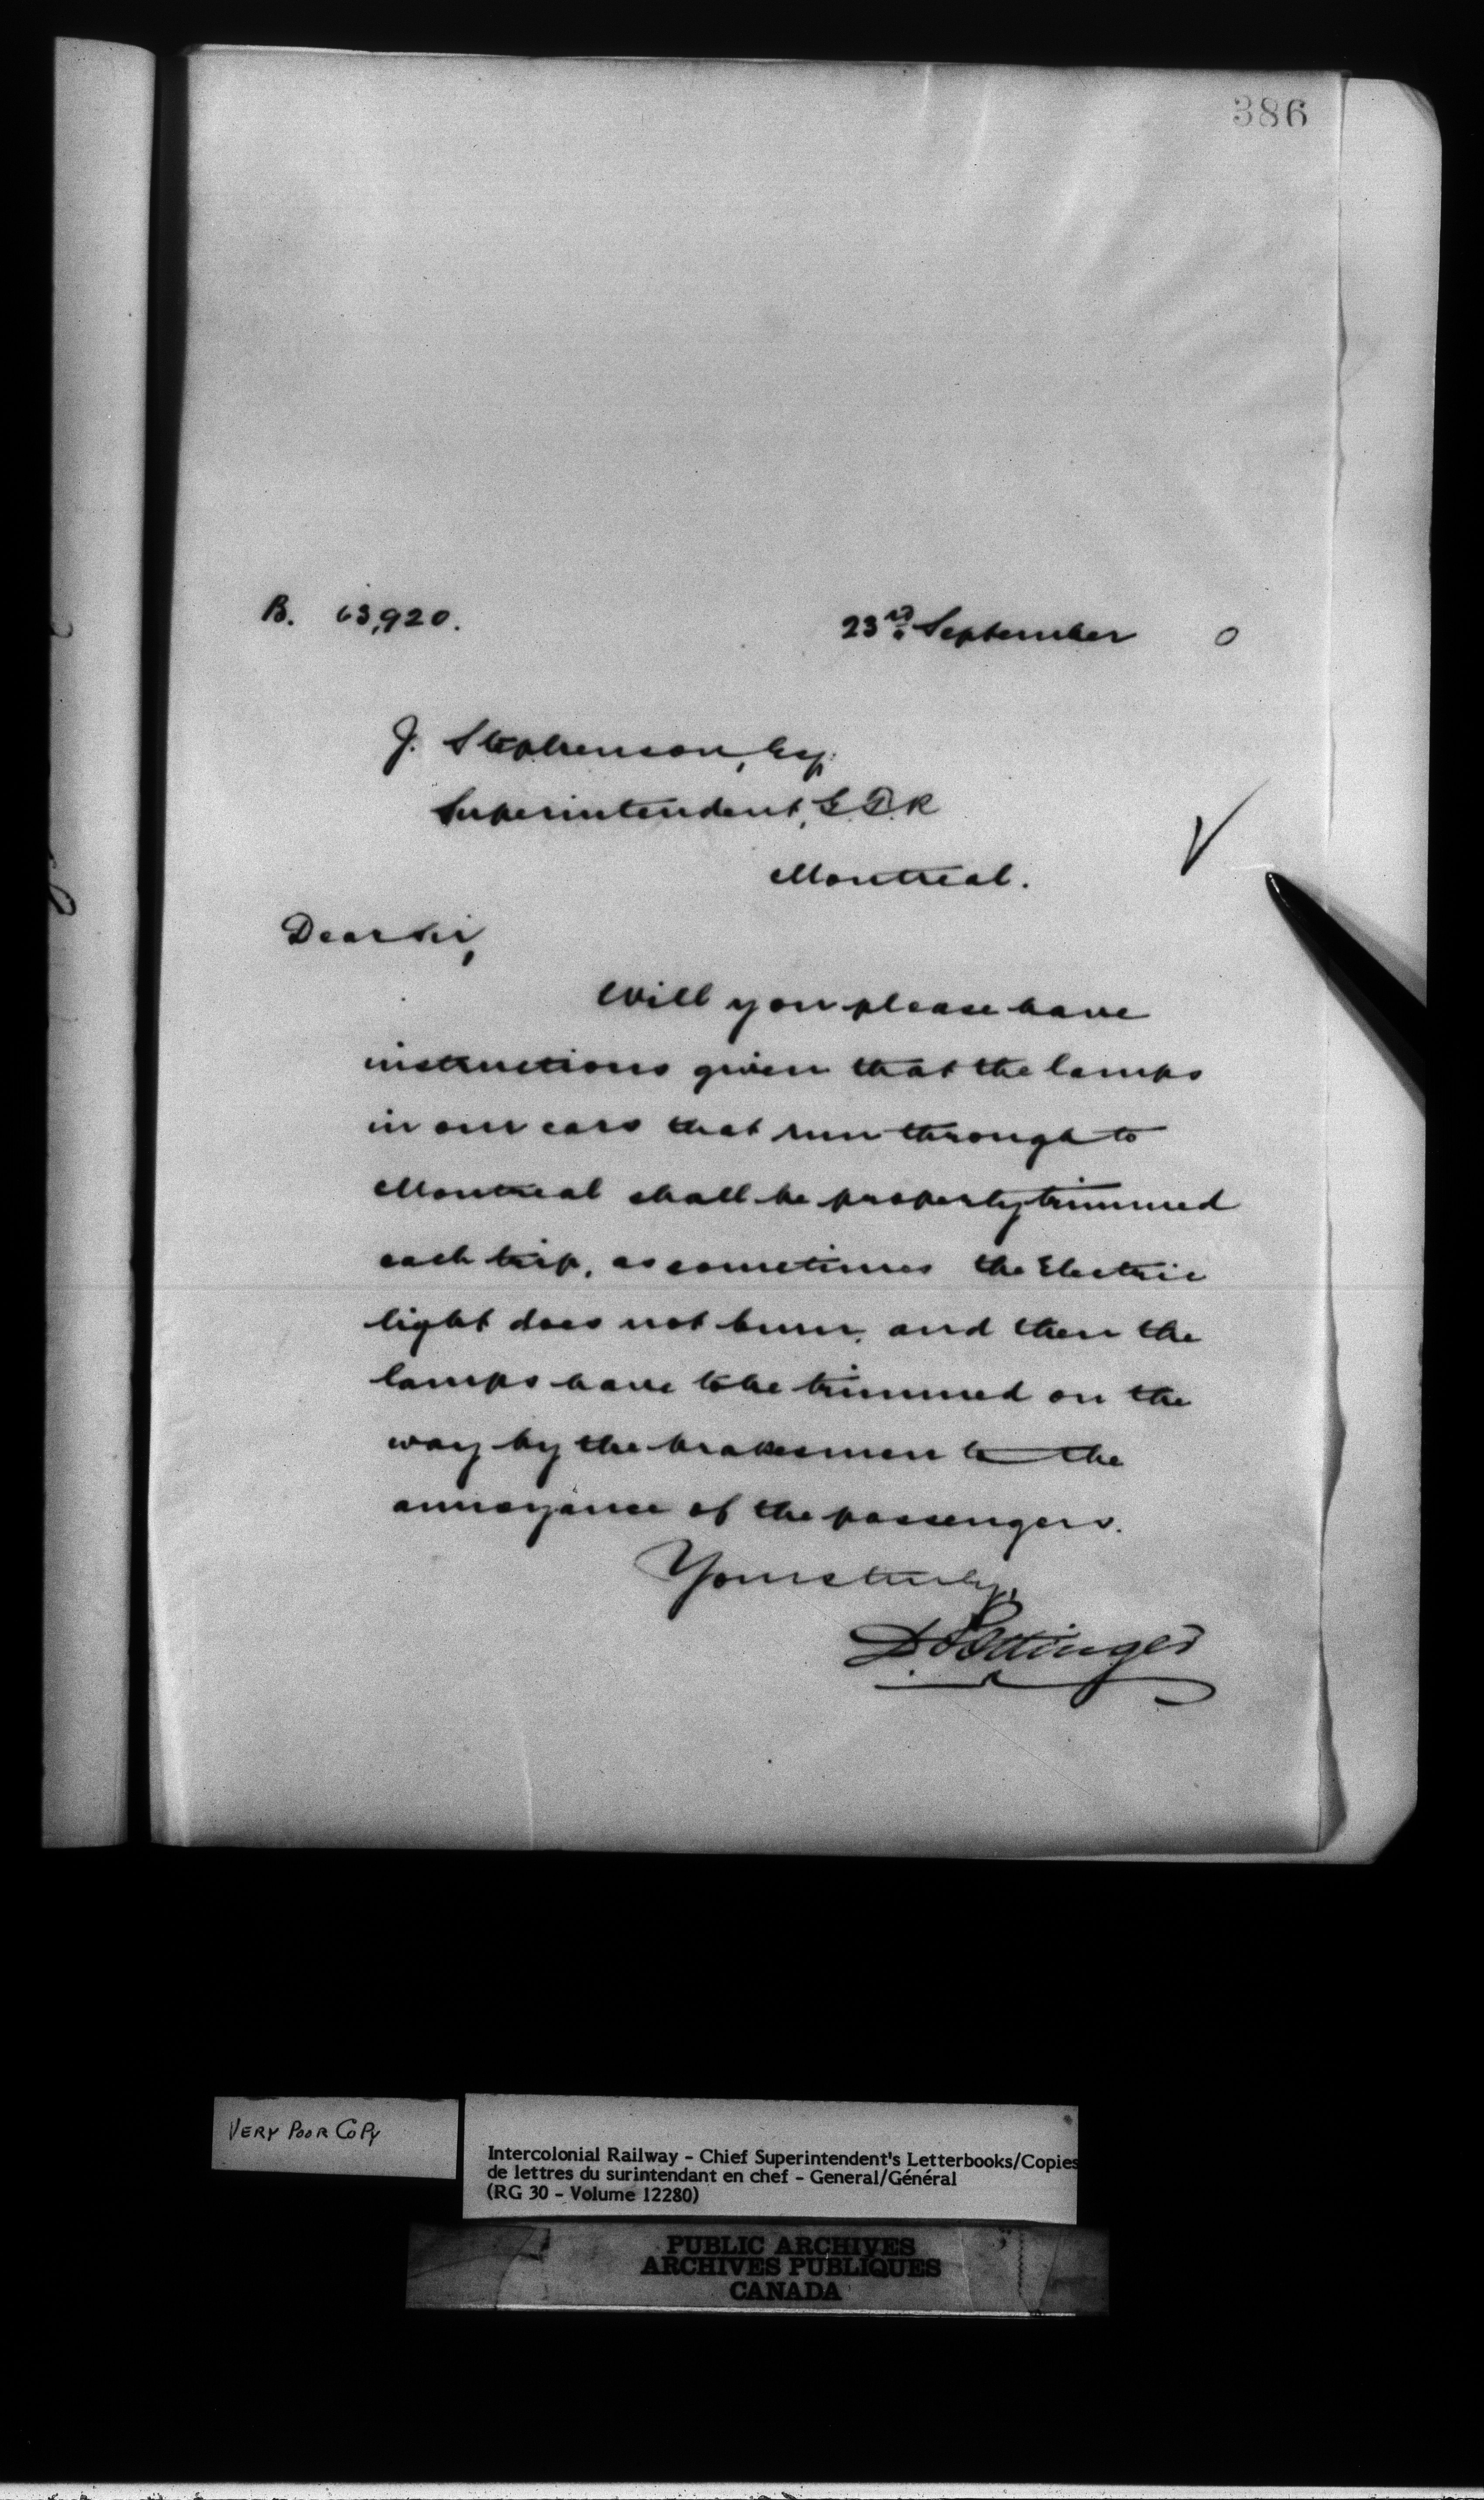 386
B. 63,920.
23rd. September 0
J. Stephenson, Esq.
Superintendent, G.T.R
Montreal.
Dear Sir,
Will you please have
instructions given that the lamps
in our cars that run through to
Montreal shall be properly trimmed
each trip, as sometimes the Electric
light does not burn, and then the
lamps have to be trimmed on the
way by the brakesmen to the
annoyance of the passengers.
Yours truly,
D Pottinger
VERY POOR COPY
Intercolonial Railway - Chief Superintendent's Letterbooks/Copies
de lettres du surintendant en chef - General/Général
(RG 30 - Volume 12280)
PUBLIC ARCHIVES
ARCHIVES PUBLIQUES
CANADA